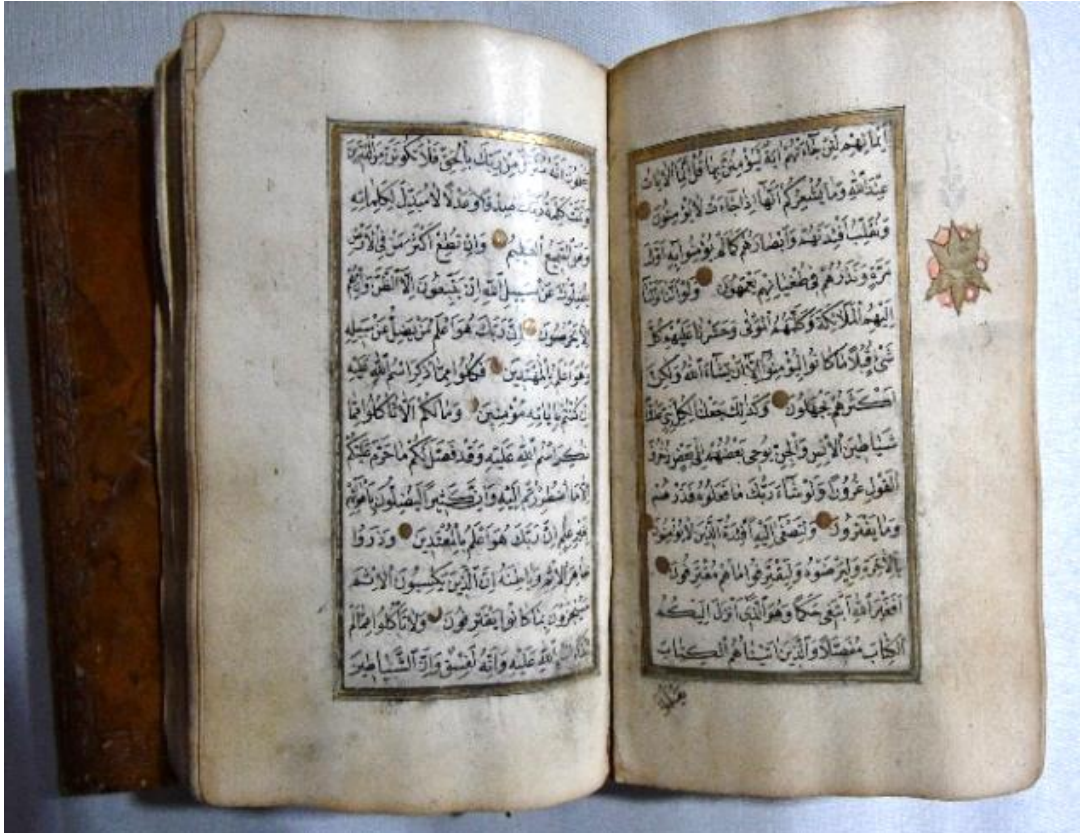 اَيْمَانِهِمْ لَئِنْ جَاءَتْهُمْ اٰيَةٌ لَيُؤْمِنُنَّ بِهَا قُلْ اِنَّمَا الْاٰيَاتُ
عِنْدَ اللّٰهِ وَمَا يُشْعِرُكُمْ اَنَّهَا اِذَا جَاءَتْ لَا يُؤْمِنُونَ
وَنُقَلِّبُ اَفْئِدَتَهُمْ وَاَبْصَارَهُمْ كَمَا لَمْ يُؤْمِنُوا بِهِ اَوَّلَ
مَرَّةٍ وَنَذَرُهُمْ فِي طُغْيَانِهِمْ يَعْمَهُونَ وَلَوْ اَنَّنَا نَزَّلْنَا
اِلَيْهِمُ الْمَلَائِكَةَ وَكَلَّمَهُمُ الْمَوْتٰى وَحَشَرْنَا عَلَيْهِمْ كُلَّ
شَيْءٍ قُبُلًا مَا كَانُوا لِيُؤْمِنُوا اِلَّا اَنْ يَشَاءَ اللّٰهُ وَلٰكِنَّ
اَكْثَرَهُمْ يَجْهَلُونَ وَكَذٰلِكَ جَعَلْنَا لِكُلِّ نَبِيٍّ عَدُوًّا
شَيَاطِينَ الْاِنْسِ وَالْجِنِّ يُوحِي بَعْضُهُمْ اِلٰى بَعْضٍ زُخْرُفَ
الْقَوْلِ غُرُورًا وَلَوْ شَاءَ رَبُّكَ مَا فَعَلُوهُ فَذَرْهُمْ
وَمَا يَفْتَرُونَ وَلِتَصْغٰى اِلَيْهِ اَفْئِدَةُ الَّذِينَ لَا يُؤْمِنُونَ
بِالْاٰخِرَةِ وَلِيَرْضَوْهُ وَلِيَقْتَرِفُوا مَا هُمْ مُقْتَرِفُونَ
اَفَغَيْرَ اللّٰهِ اَبْتَغِي حَكَمًا وَهُوَ الَّذِي اَنْزَلَ اِلَيْكُمُ
الْكِتَابَ مُفَصَّلًا وَالَّذِينَ اٰتَيْنَاهُمُ الْكِتَابَ
يعلمون
يَعْلَمُونَ اَنَّهُ مُنَزَّلٌ مِنْ رَبِّكَ بِالْحَقِّ فَلَا تَكُونَنَّ مِنَ الْمُمْتَرِينَ
وَتَمَّتْ كَلِمَةُ رَبِّكَ صِدْقًا وَعَدْلًا لَا مُبَدِّلَ لِكَلِمَاتِهِ
وَهُوَ السَّمِيعُ الْعَلِيمُ وَاِنْ تُطِعْ اَكْثَرَ مَنْ فِي الْاَرْضِ
يُضِلُّوكَ عَنْ سَبِيلِ اللّٰهِ اِنْ يَتَّبِعُونَ اِلَّا الظَّنَّ وَاِنْ هُمْ
اِلَّا يَخْرُصُونَ اِنَّ رَبَّكَ هُوَ اَعْلَمُ مَنْ يَضِلُّ عَنْ سَبِيلِهِ
وَهُوَ اَعْلَمُ بِالْمُهْتَدِينَ فَكُلُوا مِمَّا ذُكِرَ اسْمُ اللّٰهِ عَلَيْهِ
اِنْ كُنْتُمْ بِاٰيَاتِهِ مُؤْمِنِينَ وَمَا لَكُمْ اَلَّا تَأْكُلُوا مِمَّا
ذُكِرَ اسْمُ اللّٰهِ عَلَيْهِ وَقَدْ فَصَّلَ لَكُمْ مَا حَرَّمَ عَلَيْكُمْ
اِلَّا مَا اضْطُرِرْتُمْ اِلَيْهِ وَاِنَّ كَثِيرًا لَيُضِلُّونَ بِاَهْوَائِهِمْ
بِغَيْرِ عِلْمٍ اِنَّ رَبَّكَ هُوَ اَعْلَمُ بِالْمُعْتَدِينَ وَذَرُوا
ظَاهِرَ الْاِثْمِ وَبَاطِنَهُ اِنَّ الَّذِينَ يَكْسِبُونَ الْاِثْمَ
سَيُجْزَوْنَ بِمَا كَانُوا يَقْتَرِفُونَ وَلَا تَأْكُلُوا مِمَّا لَمْ
يُذْكَرِ اسْمُ اللّٰهِ عَلَيْهِ وَاِنَّهُ لَفِسْقٌ وَاِنَّ الشَّيَاطِينَ